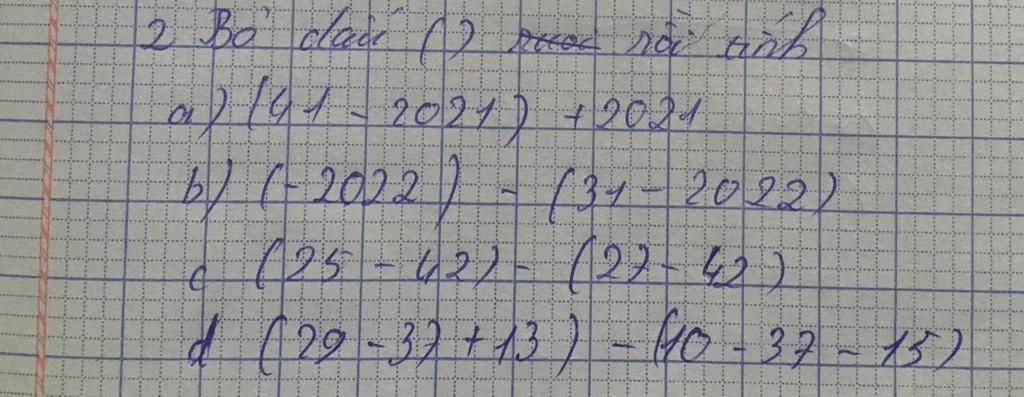 2 Bỏ dấu () rồi tính
a) (41 - 2021) + 2021
b) (-2022) - (31 - 2022)
c (25 - 42) - (27 - 42)
d (29 - 37 + 13) - (10 - 37 - 15)